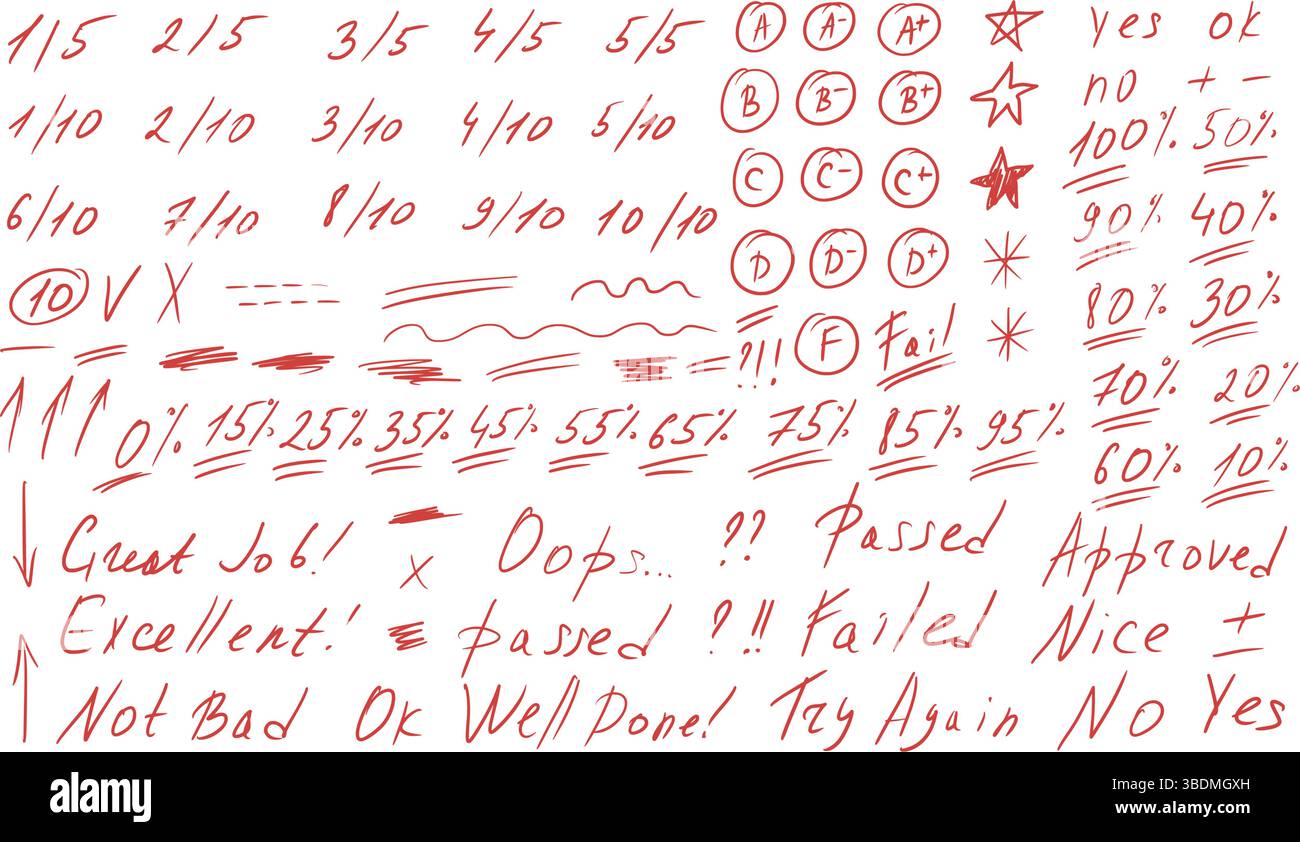 1/5 2/5 3/5 4/5 5/5 A A- A+ yes ok
1/10 2/10 3/10 4/10 5/10 B B- B+ no + -
100% 50%
6/10 7/10 8/10 9/10 10/10 C C- C+ 90% 40%
10 V X D D- D+ 80% 30%
?!! F Fail
0% 15% 25% 35% 45% 55% 65% 75% 85% 95% 70% 20%
60% 10%
Great Job! x Oops... ?? Passed Approved
Excellent! passed ?!! Failed Nice ±
Not Bad Ok Well Done! Try Again No Yes
alamy
Image ID: 3BDMGXH
www.alamy.com